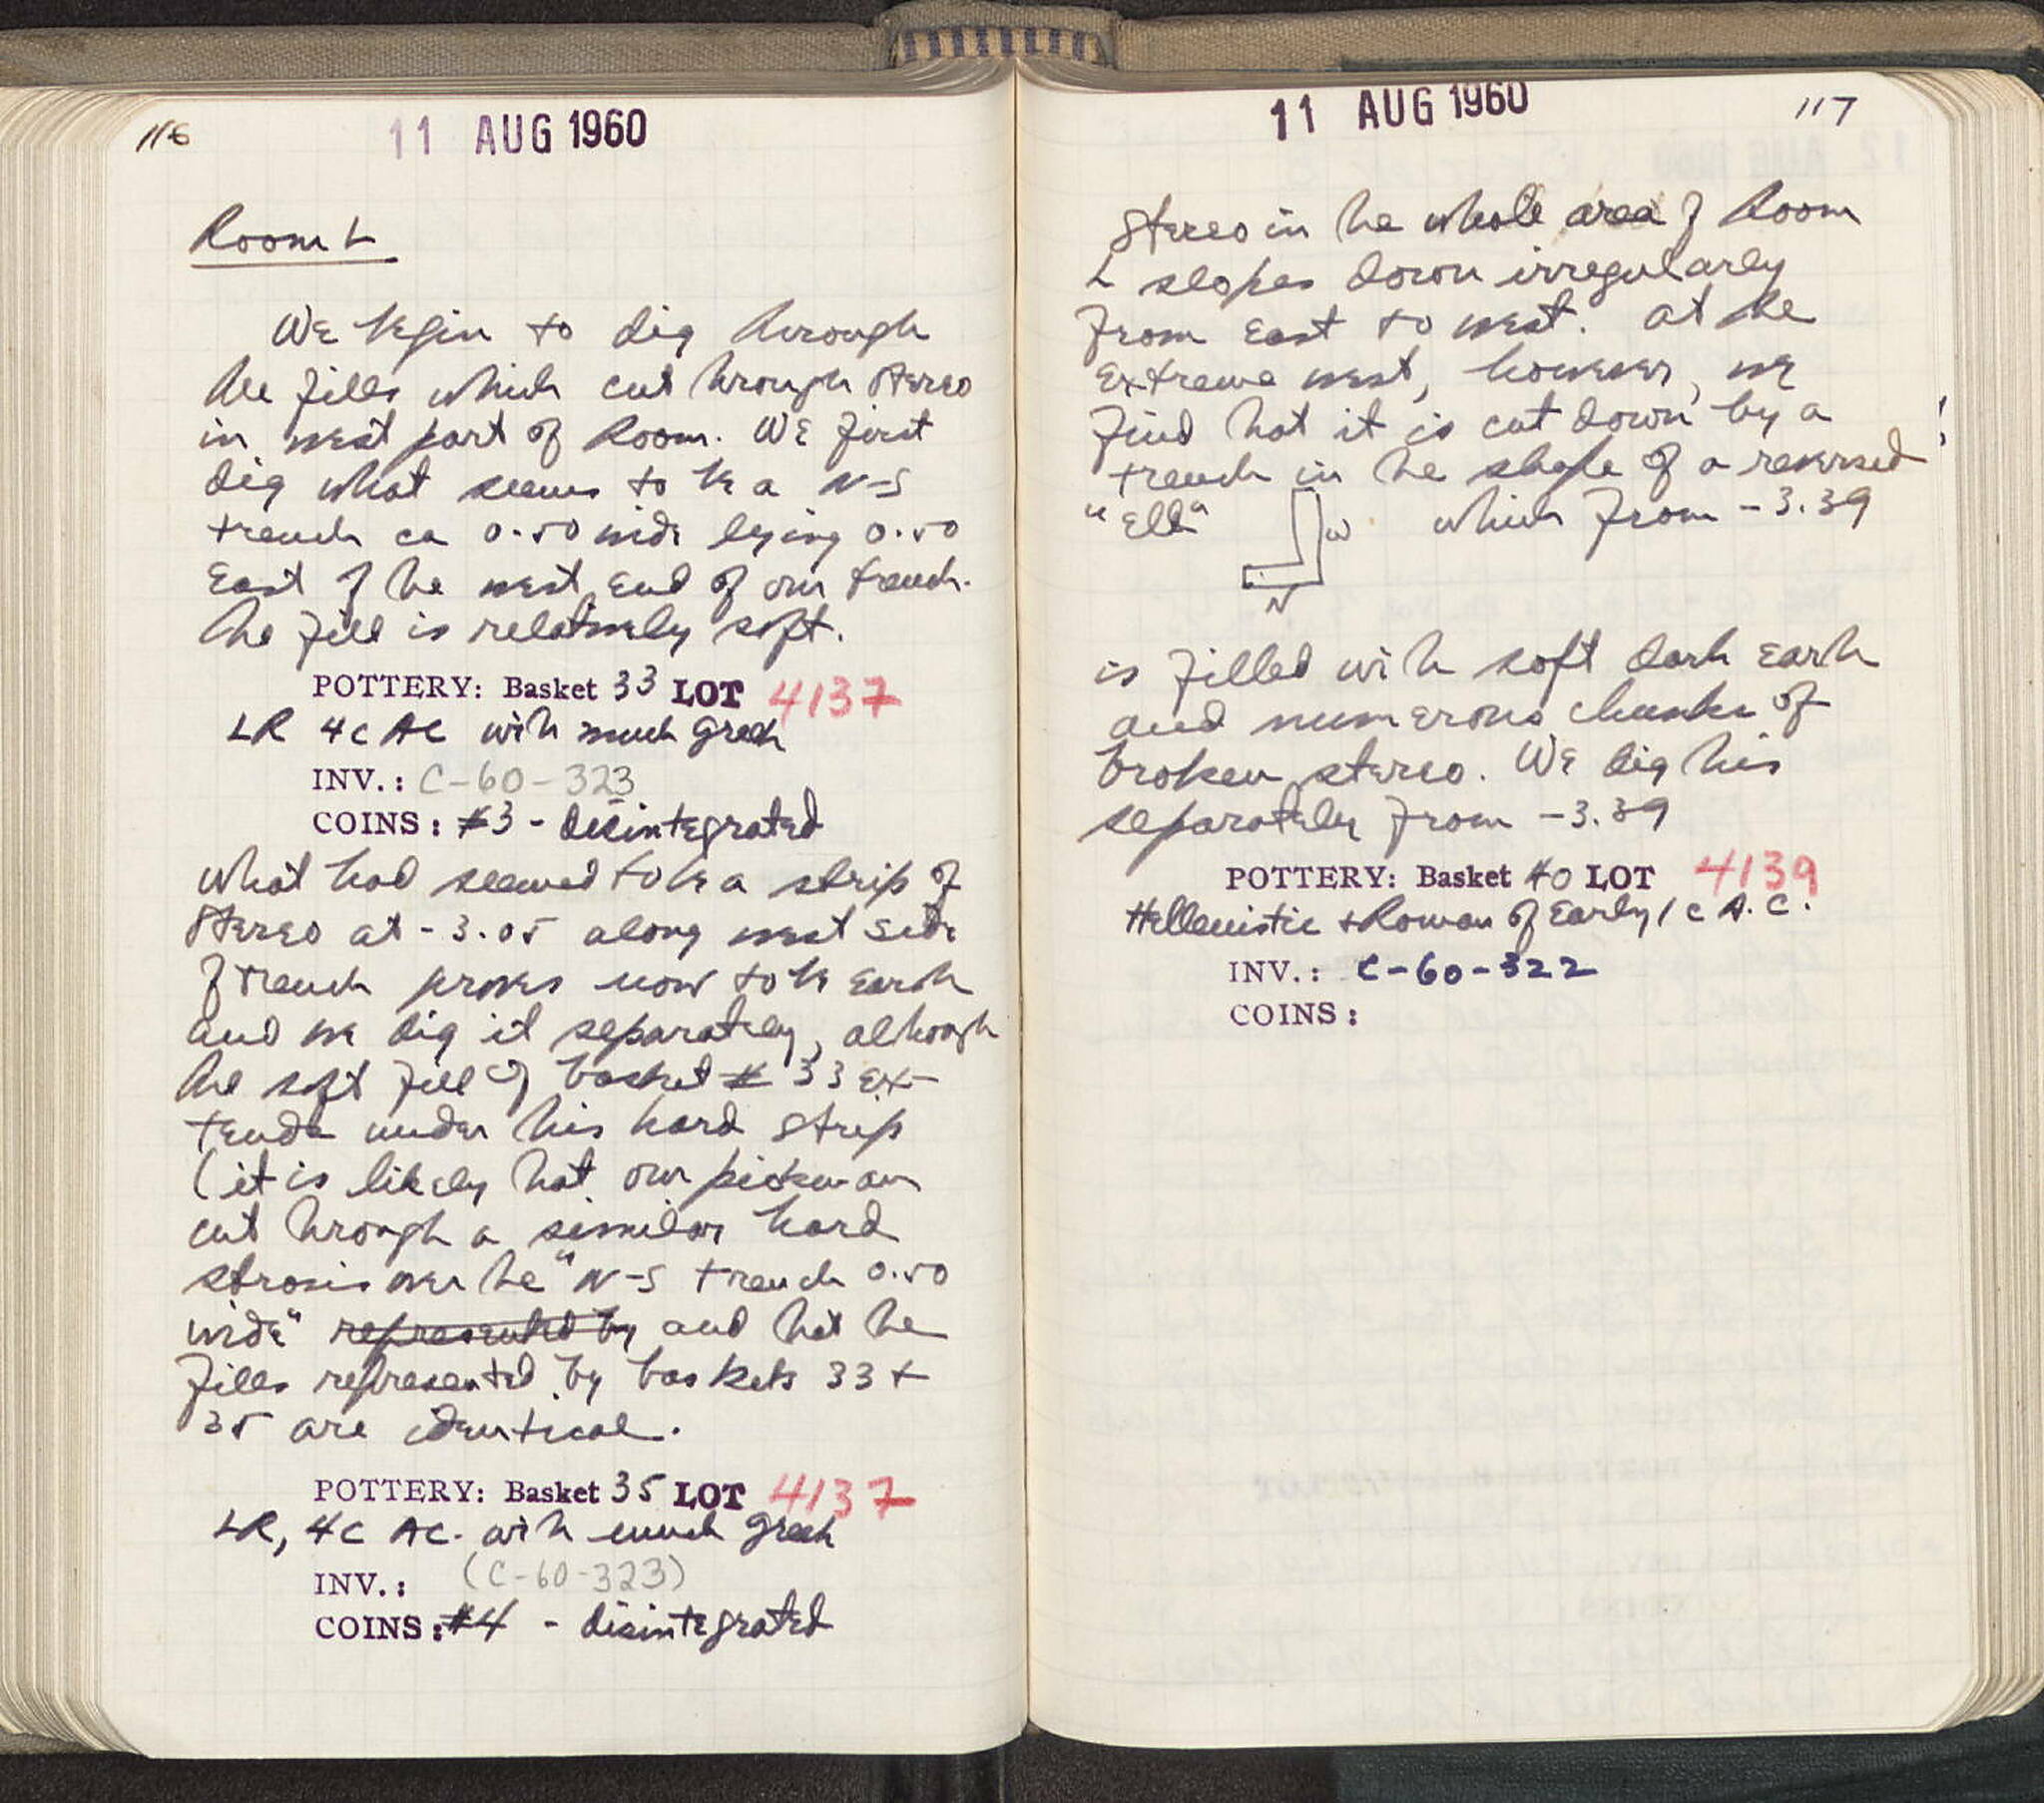 116
11 AUG 1960
Room L
We begin to dig through
the fills which cut through stereo
in west part of Room. We first
dig what seems to be a N-S
trench ca 0.50 wide lying 0.50
East of the west end of our trench.
The fill is relatively soft.
POTTERY: Basket 33 LOT 4137
LR 4c AC with much Greek
INV.: C-60-323
COINS: #3 - disintegrated
What had seemed to be a strip of
stereo at -3.05 along west side
of trench proves now to be earth
and we dig it separately, although
the soft fill of basket # 33 ex-
tends under this hard strip
(it is likely that our pickman
cut through a similar hard
strosis over the "N-S trench 0.50
wide" represented by and that the
fills represented by baskets 33 +
35 are identical.
POTTERY: Basket 35 LOT 4137
LR, 4c AC. with much Greek
INV.: (C-60-323)
COINS: #4 - disintegrated
11 AUG 1960
117
Stereo in the whole area of Room
L slopes down irregularly
from East to west. At the
extreme west, however, we
find that it is cut down by a
trench in the shape of a reversed !
"Ell" W which from -3.39
N
is filled with soft dark earth
and numerous chunks of
broken stereo. We dig this
separately from -3.39
POTTERY: Basket 40 LOT 4139
Hellenistic + Roman of Early 1c A.C.
INV.: C-60-322
COINS: